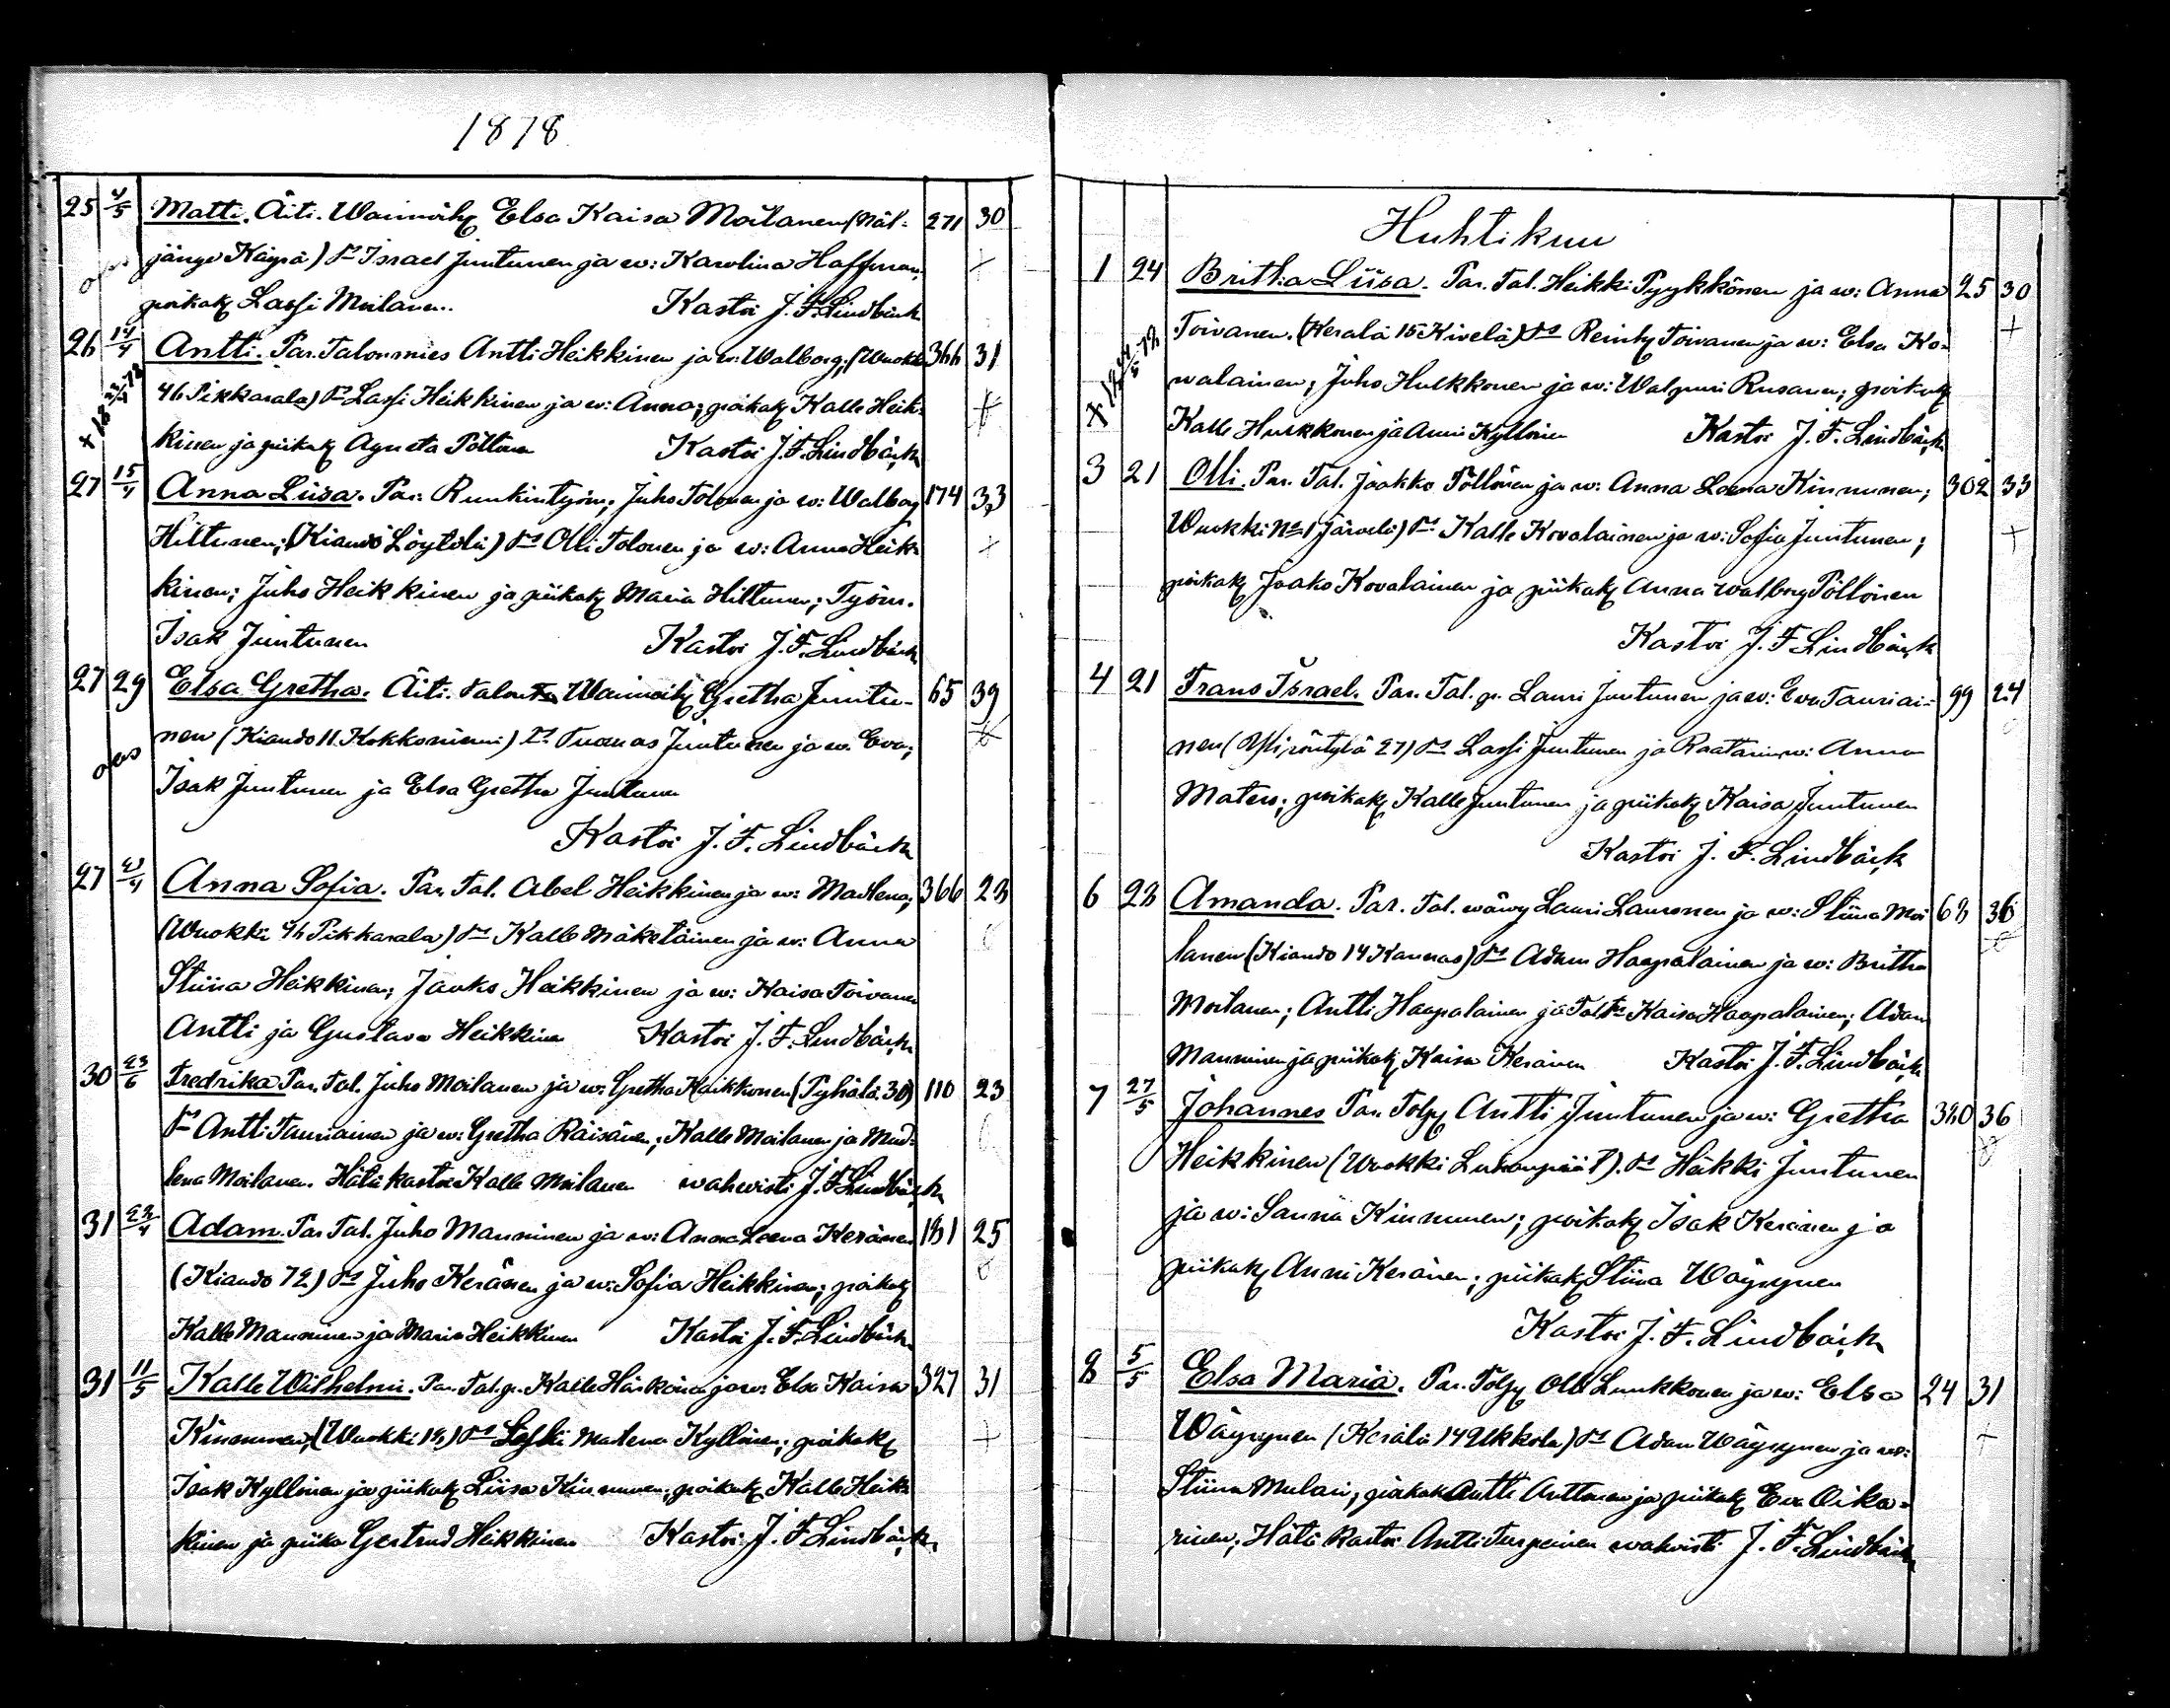 1878
25 4/5 Matti. Äiti. Waimoihq Elsa Kaisa Moilanen (Näl- 271 30
jänge Käyrä) Ts Israel Juntunen ja w: Karolina Hoffman,
oäs poikaq Lassi Moilanen. Kastoi J. F. Lindbäck
26 14/4 Antti. Par. Talonmies Antti Heikkinen ja w: Walborg; (Wuokki 366 31
46 Pikkarala) Ts Lassi Heikkinen ja w: Anna; poikaq Kalle Heik-
kinen ja piikaq Agneta Pöllönen Kastoi J. F. Lindbäck
27 15/4 Anna Liisa. Par: Ruukintyöm; Juho Tolonen ja w: Walborg 174 33
Hiltunen; (Kiando Löytölä) Ts Olli Tolonen ja w: Anna Heik-
kinen; Juho Heikkinen ja piikaq Maria Hiltunen; Työm.
Isak Juntunen Kastoi J. F. Lindbäck
27 29 Elsa Gretha. Äiti. talon Waimoihq Gretha Juntu- 65 39
nen (Kiando 11 Kokkoniemi) Ts Tuomas Juntunen ja w. Eva;
oäs Isak Juntunen ja Elsa Gretha Juntunen
Kastoi J. F. Lindbäck
27 2/4 Anna Sofia. Par. Tal. Abel Heikkinen ja w: Madlena; 366 28
(Wuokki 46 Pikkarala) Ts Kalle Mäkeläinen ja w: Anna
Stiina Heikkinen; Jaako Heikkinen ja w: Kaisa Toivanen
Antti ja Gustava Heikkinen Kastoi J. F. Lindbäck
30 23/6 Fredrika Par. Tal. Juho Moilanen ja w: Gretha Keikkonen (Pyhälä 30) 110 23
Ts Antti Tauriainen ja w: Gretha Räisänen; Kalle Moilanen ja Mad-
lena Moilanen. Hätä kastoi Kalle Moilanen wahwisti J. F. Lindbäck
31 28/4 Adam. Par Tal. Juho Manninen ja w: Anna Leena Keränen 181 25
(Kiando 72) Ts Juho Keränen ja w: Sofia Heikkinen; poikaq
Kalle Manninen ja Maria Heikkinen Kastoi J. F. Lindbäck
31 11/5 Kalle Wilhelmi. Par. Tal. p. Kalle Härkönen ja w: Elsa Kaisa 327 31
Kinnunen; (Wuokki 18) Ts Matena Kyllönen; poikaq
Isak Kyllönen ja piikaq Liisa Kinnunen; poikaq Kalle Heik-
kinen ja piika Gertrud Heikkinen Kastoi J. F. Lindbäck
Huhtikuu
1 24 Britha Liisa. Par. Tal. Heikki Pyykkönen ja w: Anna 25 30
Toivanen. (Kerälä 15 Kivelä) Ts Reinhq Toivanen ja w: Elsa Ko-
walainen; Juho Hulkkonen ja w: Walpuri Rusanen; poikaq
Kalle Hulkkonen ja Anni Kyllönen Kastoi J. F. Lindbäck
3 21 Olli. Par. Tal. Jaakko Pöllönen ja w: Anna Leena Kinnunen; 302 33
Wuokki No 1 Järvelä) Ts Kalle Kovalainen ja w: Sofia Juntunen;
poikaq Jaako Kovalainen ja piikaq Anna Walborg Pöllönen
Kastoi J. F. Lindbäck
4 21 Frans Israel. Par. Tal. p. Lauri Juntunen ja w: Eva Tauriai- 99 24
nen ( 27) Ts Lassi Juntunen ja w: Anna
Matero; poikaq Kalle Juntunen ja piikaq Kaisa Juntunen
Kastoi J. F. Lindbäck
6 28 Amanda. Par. Tal. wäwy Lauri Lauronen ja w: Stiina Moi 68 36
lanen (Kiando 14 Kannas) Ts Adam Haapalainen ja w: Britha
Moilanen; Antti Haapalainen ja Tal. Kaisa Haapalainen; Adam
Manninen ja piikaq Kaisa Keränen Kastoi J. F. Lindbäck
7 27/5 Johannes Par. Tolpq Antti Juntunen ja w: Gretha 380 36
Heikkinen (Wuokki ). Ts Heikki Juntunen
ja w: Sanna Kinnunen; poikaq Isak Keränen ja
piikaq Anni Keränen; piikaq Stiina Wäyrynen
Kastoi J. F. Lindbäck
8 5/5 Elsa Maria. Par. Tolpq Olli Luukkonen ja w: Elsa 24 31
Wäyrynen (Kerälä 14 Ukkola) Ts Adam Wäyrynen ja w:
Stiina Mulari; poikaq Antti Anttonen ja piikaq Eva Oika-
rinen; Hätä kastoi Antti Turpeinen wahwisti J. F. Lindbäck